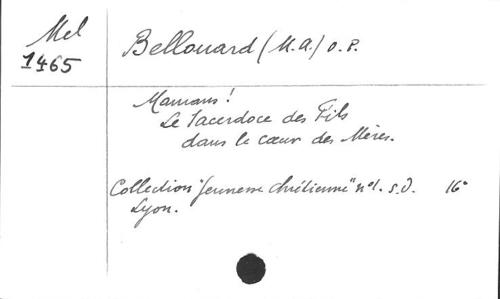 Mel
1465
Bellouard (M.A.) O.P.
Mamans !
Le Sacerdoce des Fils
dans le cœur des Mères.
Collection "Jeunesse chrétienne" n°1. s.d. 16°
Lyon.